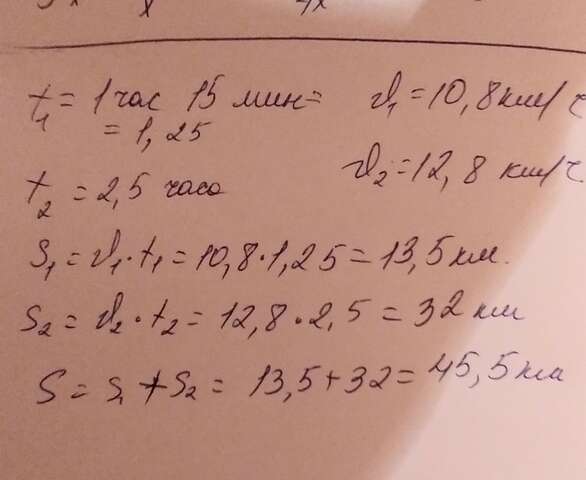 t₁ = 1 час 15 мин = v₁ = 10,8 км/ч
= 1,25
t₂ = 2,5 часа v₂ = 12,8 км/ч
S₁ = v₁ · t₁ = 10,8 · 1,25 = 13,5 км.
S₂ = v₂ · t₂ = 12,8 · 2,5 = 32 км
S = S₁ + S₂ = 13,5 + 32 = 45,5 км